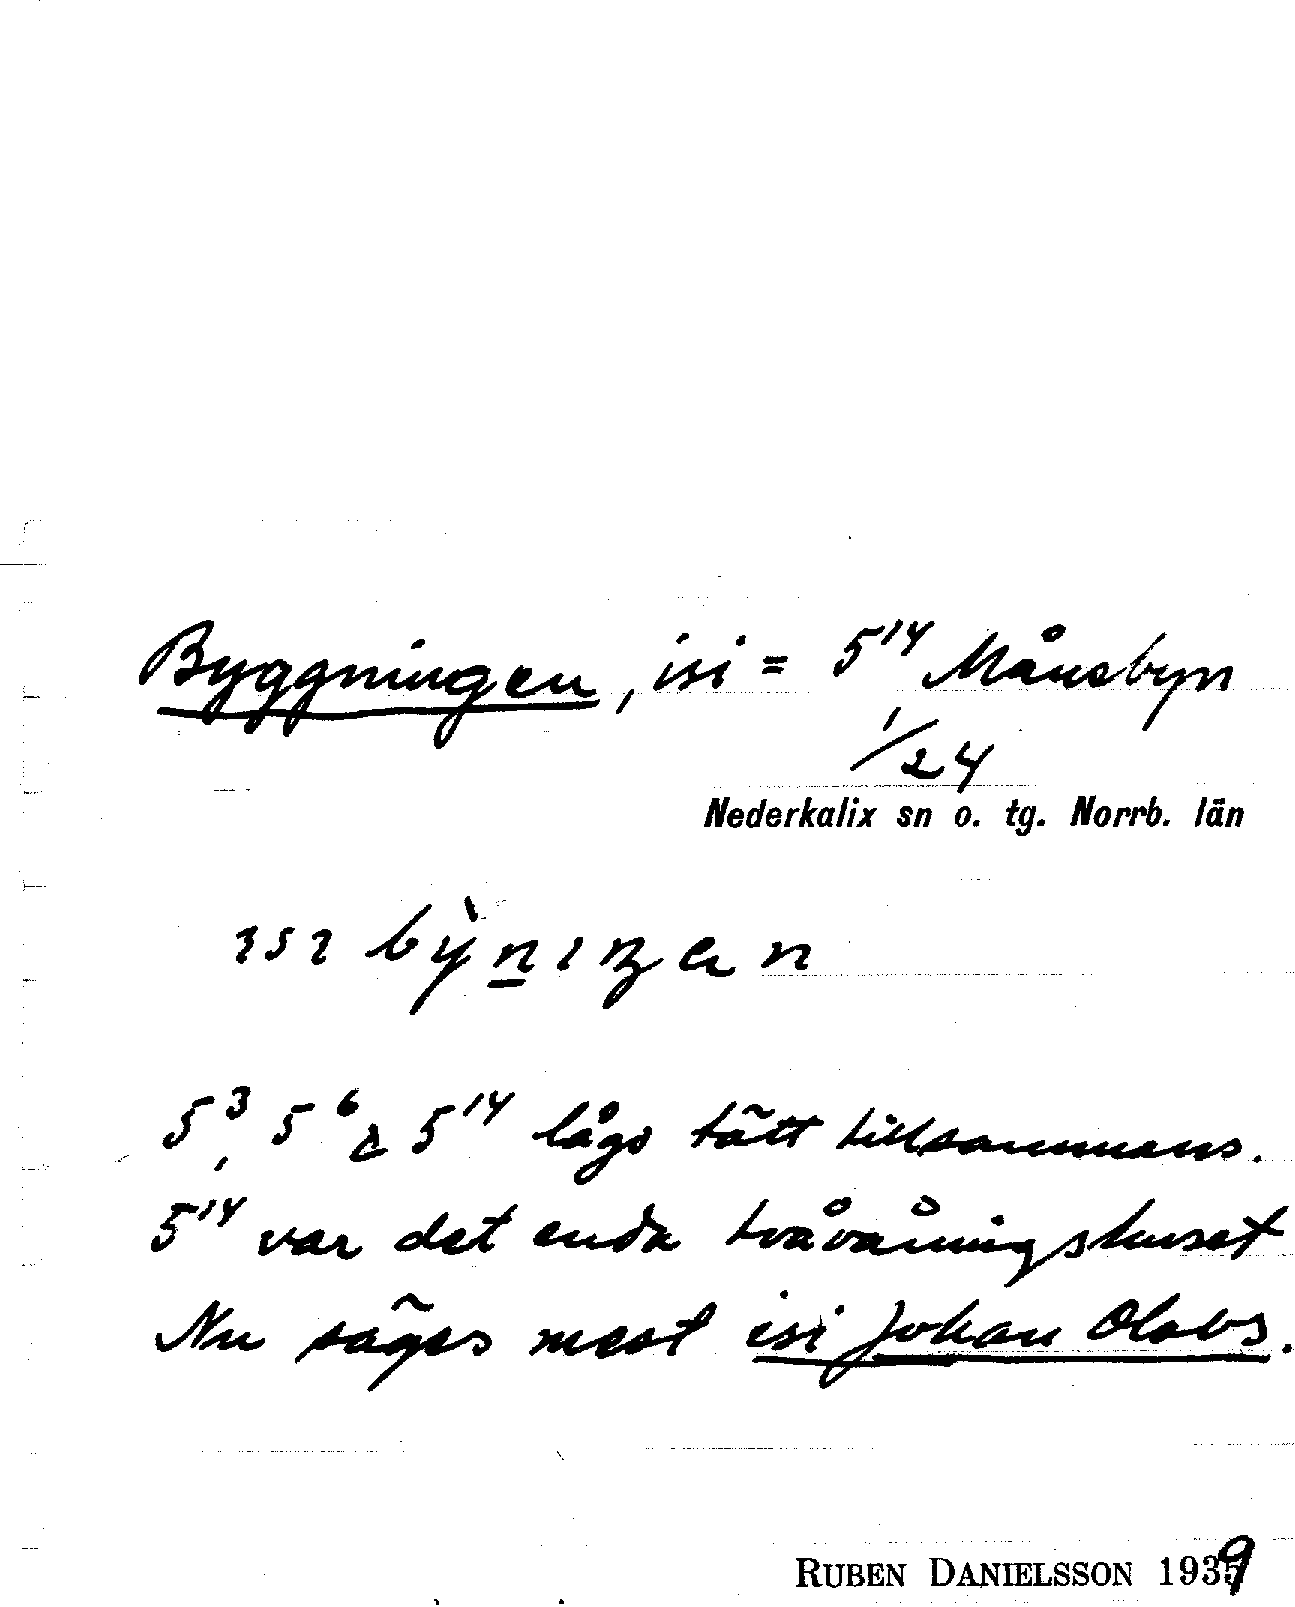 Byggningen, isi = 5¹⁴ Månsbyn
1/24
Nederkalix sn o. tg. Norrb. län
ɪsɪ bỳn̲ɪŋɐn
5³, 5⁶ & 5¹⁴ lågo tätt tillsammans.
5¹⁴ var det enda tvåvåningshuset
Nu säges mest isi Johan Olobs.
RUBEN DANIELSSON 1939